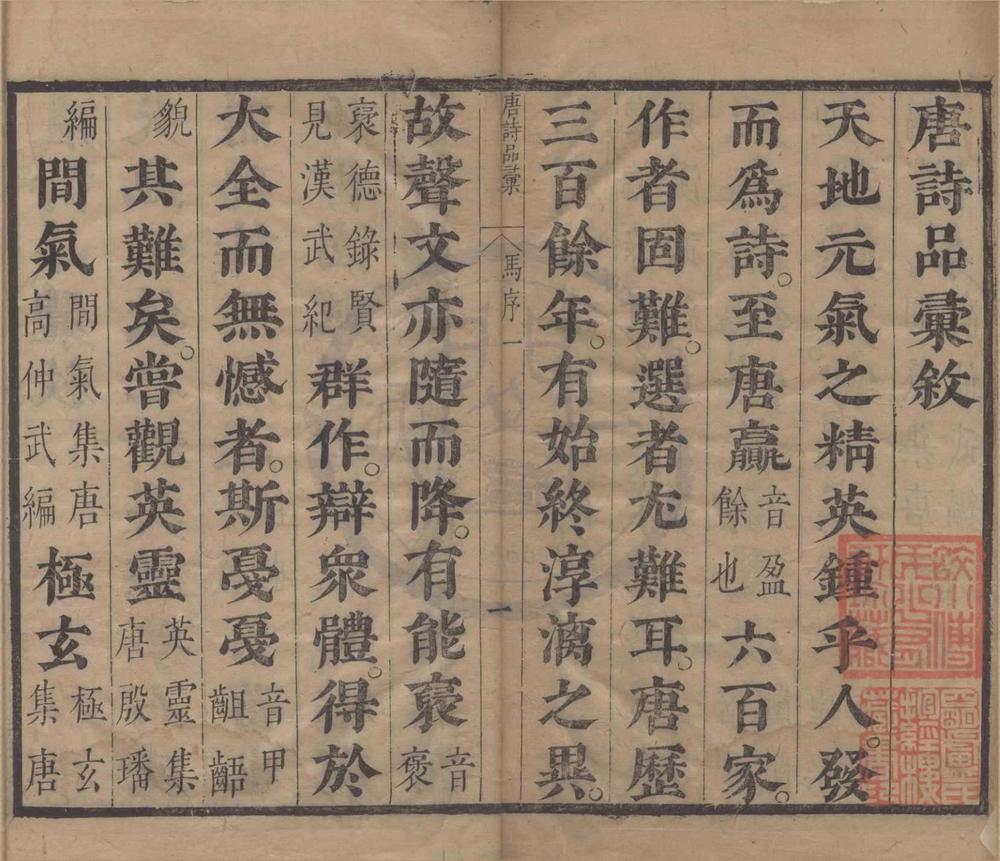 唐詩品彙敘
天地元氣之精英鍾乎人。發
而爲詩。至唐贏音盈餘也六百家。
作者固難。選者尤難耳。唐歷
三百餘年。有始終淳漓之異。
唐詩品彙 馬序一 一
故聲文亦隨而降。有能裒音褒
裒德錄賢見漢武紀群作。辯衆體。得於
大全而無憾者。斯戛戛音甲齟齬
貌其難矣。嘗觀英靈英靈集唐殷璠
編間氣間氣集唐高仲武編極玄極玄集唐